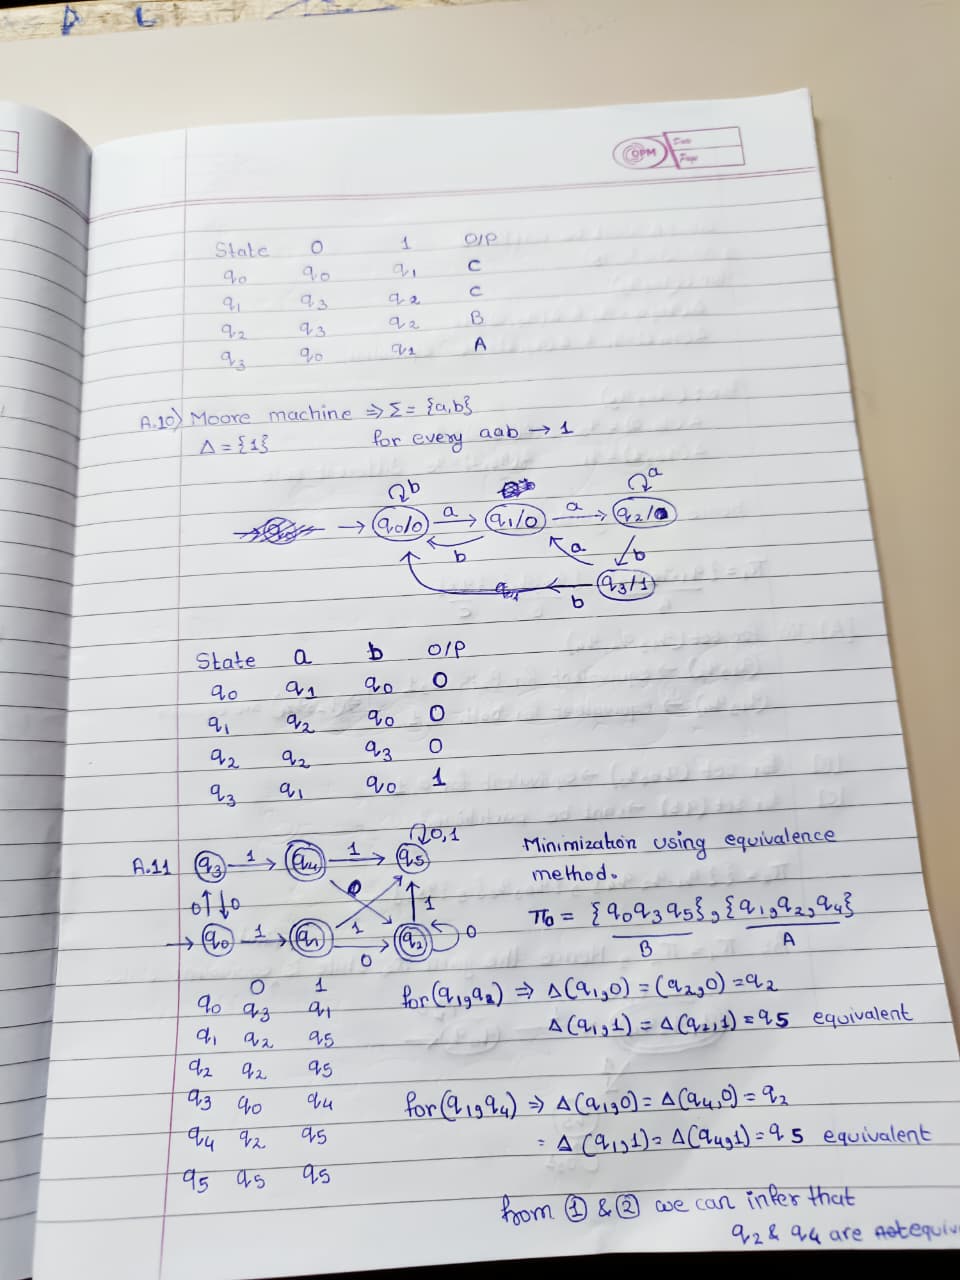 D L
OPM
Date
Page
State 0 1 O/P
q0 q0 q1 C
q1 q3 q2 C
q2 q3 q2 B
q3 q0 q1 A
A.10) Moore machine ⇒ Σ = {a,b}
Δ = {1} for every aab → 1
b a
q0/0 a q1/0 a q2/0
b a b
q3/1
b
State a b O/P
q0 q1 q0 0
q1 q2 q0 0
q2 q2 q3 0
q3 q1 q0 1
A.11 q3 1 q4 1 q5 0,1
0 0 0 1
q0 1 q1 1 q2 0
0
0 1
q0 q3 q1
q1 q2 q5
q2 q2 q5
q3 q0 q4
q4 q2 q5
q5 q5 q5
Minimization using equivalence
method.
π0 = {q0 q3 q5}, {q1, q2, q4}
B A
for (q1, q2) ⇒ Δ(q1,0) = (q2,0) = q2
Δ(q1,1) = Δ(q2,1) = q5 equivalent
for (q1, q4) ⇒ Δ(q1,0) = Δ(q4,0) = q2
= Δ(q1,1) = Δ(q4,1) = q5 equivalent
from ① & ② we can infer that
q2 & q4 are equiv